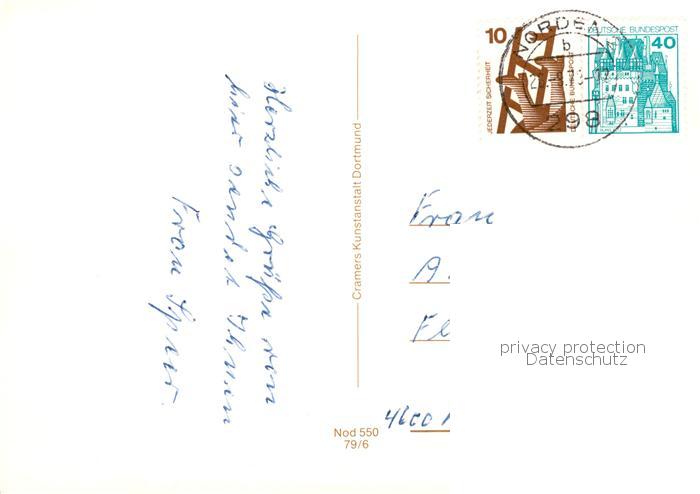 Herzliche Grüße von
hier sendet Ihnen
Frau
Cramers Kunstanstalt Dortmund
Nod 550
79/6
10
JEDERZEIT SICHERHEIT
DEUTSCHE BUNDESPOST
DEUTSCHE BUNDESPOST
40
NORDEN
b
298
Frau
A.
Fl
4600
privacy protection
Datenschutz